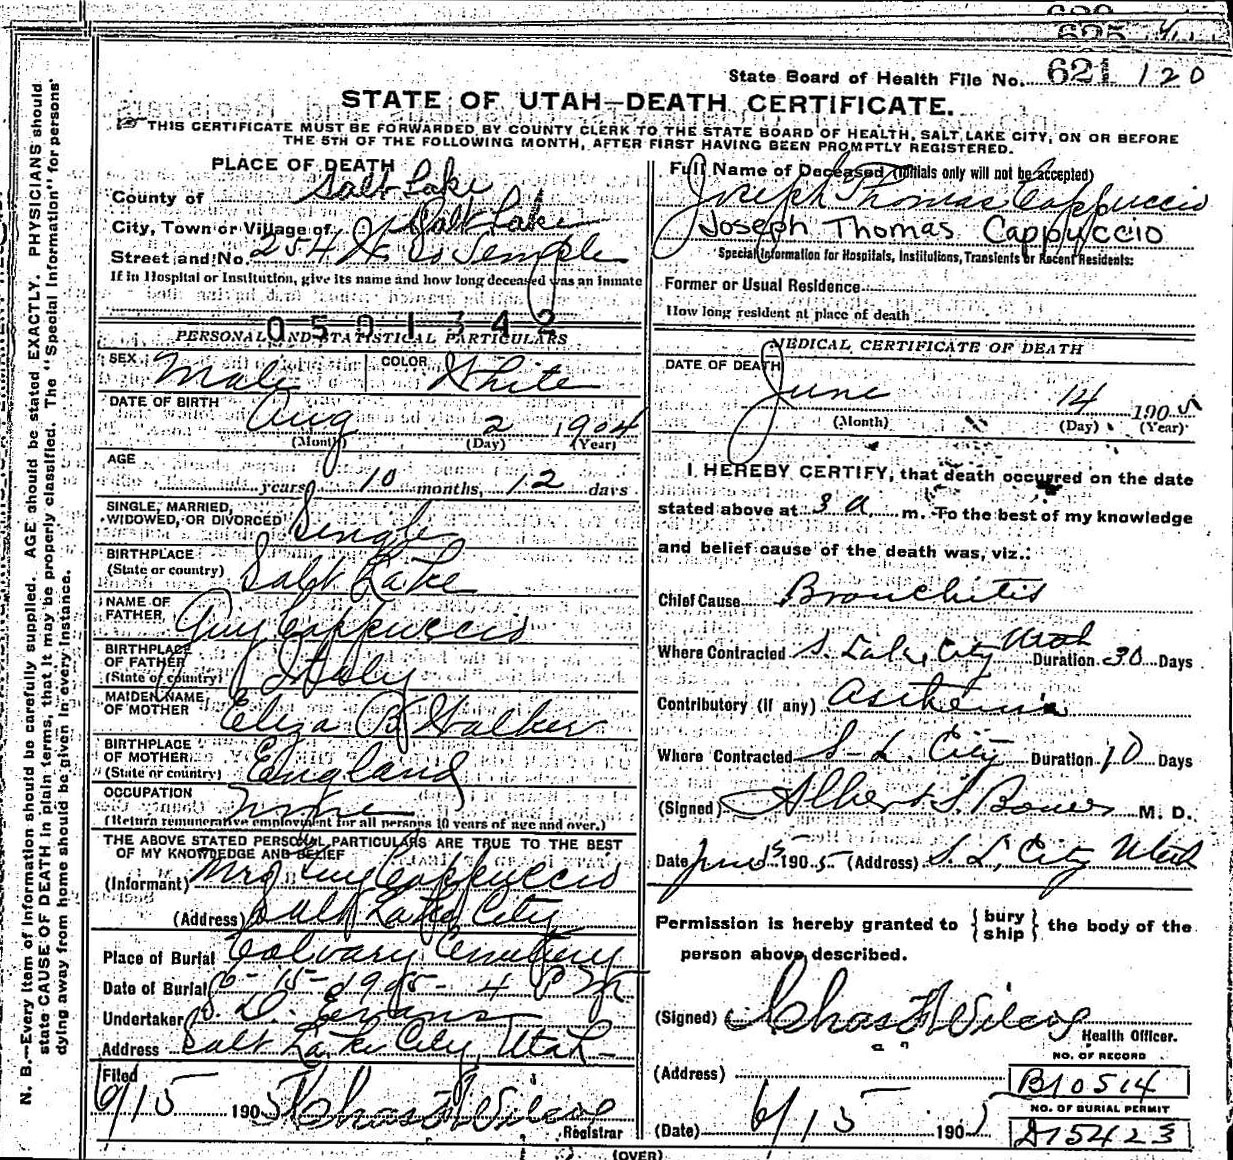 State Board of Health File No. 621 120
STATE OF UTAH—DEATH CERTIFICATE.
THIS CERTIFICATE MUST BE FORWARDED BY COUNTY CLERK TO THE STATE BOARD OF HEALTH, SALT LAKE CITY, ON OR BEFORE
THE 5TH OF THE FOLLOWING MONTH, AFTER FIRST HAVING BEEN PROMPTLY REGISTERED.
N. B.—Every item of information should be carefully supplied. AGE should be stated EXACTLY. PHYSICIANS should
state CAUSE OF DEATH in plain terms, that it may be properly classified. The "Special Information" for persons
dying away from home should be given in every instance.
PLACE OF DEATH
County of Salt Lake
City, Town or Village of Salt Lake
Street and No. 254 W. So Temple
If in Hospital or Institution, give its name and how long deceased was an inmate
0501342
PERSONAL AND STATISTICAL PARTICULARS
SEX Male COLOR White
DATE OF BIRTH Aug 2 1904
(Month) (Day) (Year)
AGE
years 10 months, 12 days
SINGLE, MARRIED,
WIDOWED, OR DIVORCED Single
BIRTHPLACE
(State or country) Salt Lake
NAME OF
FATHER Guy Cappuccio
BIRTHPLACE
OF FATHER
(State or country) Italy
MAIDEN NAME
OF MOTHER Eliza B Walker
BIRTHPLACE
OF MOTHER
(State or country) England
OCCUPATION None
(Return remunerative employment for all persons 10 years of age and over.)
THE ABOVE STATED PERSONAL PARTICULARS ARE TRUE TO THE BEST
OF MY KNOWLEDGE AND BELIEF
(Informant) Mrs Guy Cappuccio
(Address) Salt Lake City
Place of Burial Calvary Cemetery
Date of Burial 6-15-1905-4 P M
Undertaker S. D. Evans
Address Salt Lake City, Utah
Filed
6/15 1905 Chas F Wilcox
Registrar
Full Name of Deceased (Initials only will not be accepted)
Joseph Thomas Cappuccio
Joseph Thomas Cappuccio
Special Information for Hospitals, Institutions, Transients or Recent Residents:
Former or Usual Residence
How long resident at place of death
MEDICAL CERTIFICATE OF DEATH
DATE OF DEATH
June 14 1905
(Month) (Day) (Year)
I HEREBY CERTIFY, that death occurred on the date
stated above at 3 a. m. To the best of my knowledge
and belief cause of the death was, viz.:
Chief Cause Bronchitis
Where Contracted S. Lake City Utah Duration 30 Days
Contributory (if any) Asthenia
Where Contracted S. L. City Duration 10 Days
(Signed) Albert S. Bower M. D.
Date June 15 1905 (Address) S. L. City Utah
Permission is hereby granted to {bury
ship} the body of the
person above described.
(Signed) Chas F Wilcox
Health Officer.
(Address)
NO. OF RECORD
B10514
NO. OF BURIAL PERMIT
(Date) 6/15 1905 D15423
(OVER)